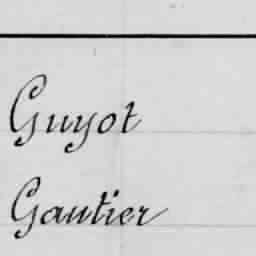 Guyot
Gautier